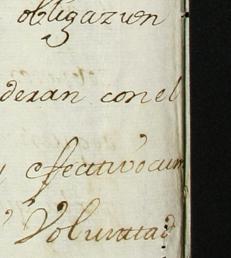 obligazion
deran con el
efectivo cum
Voluntad